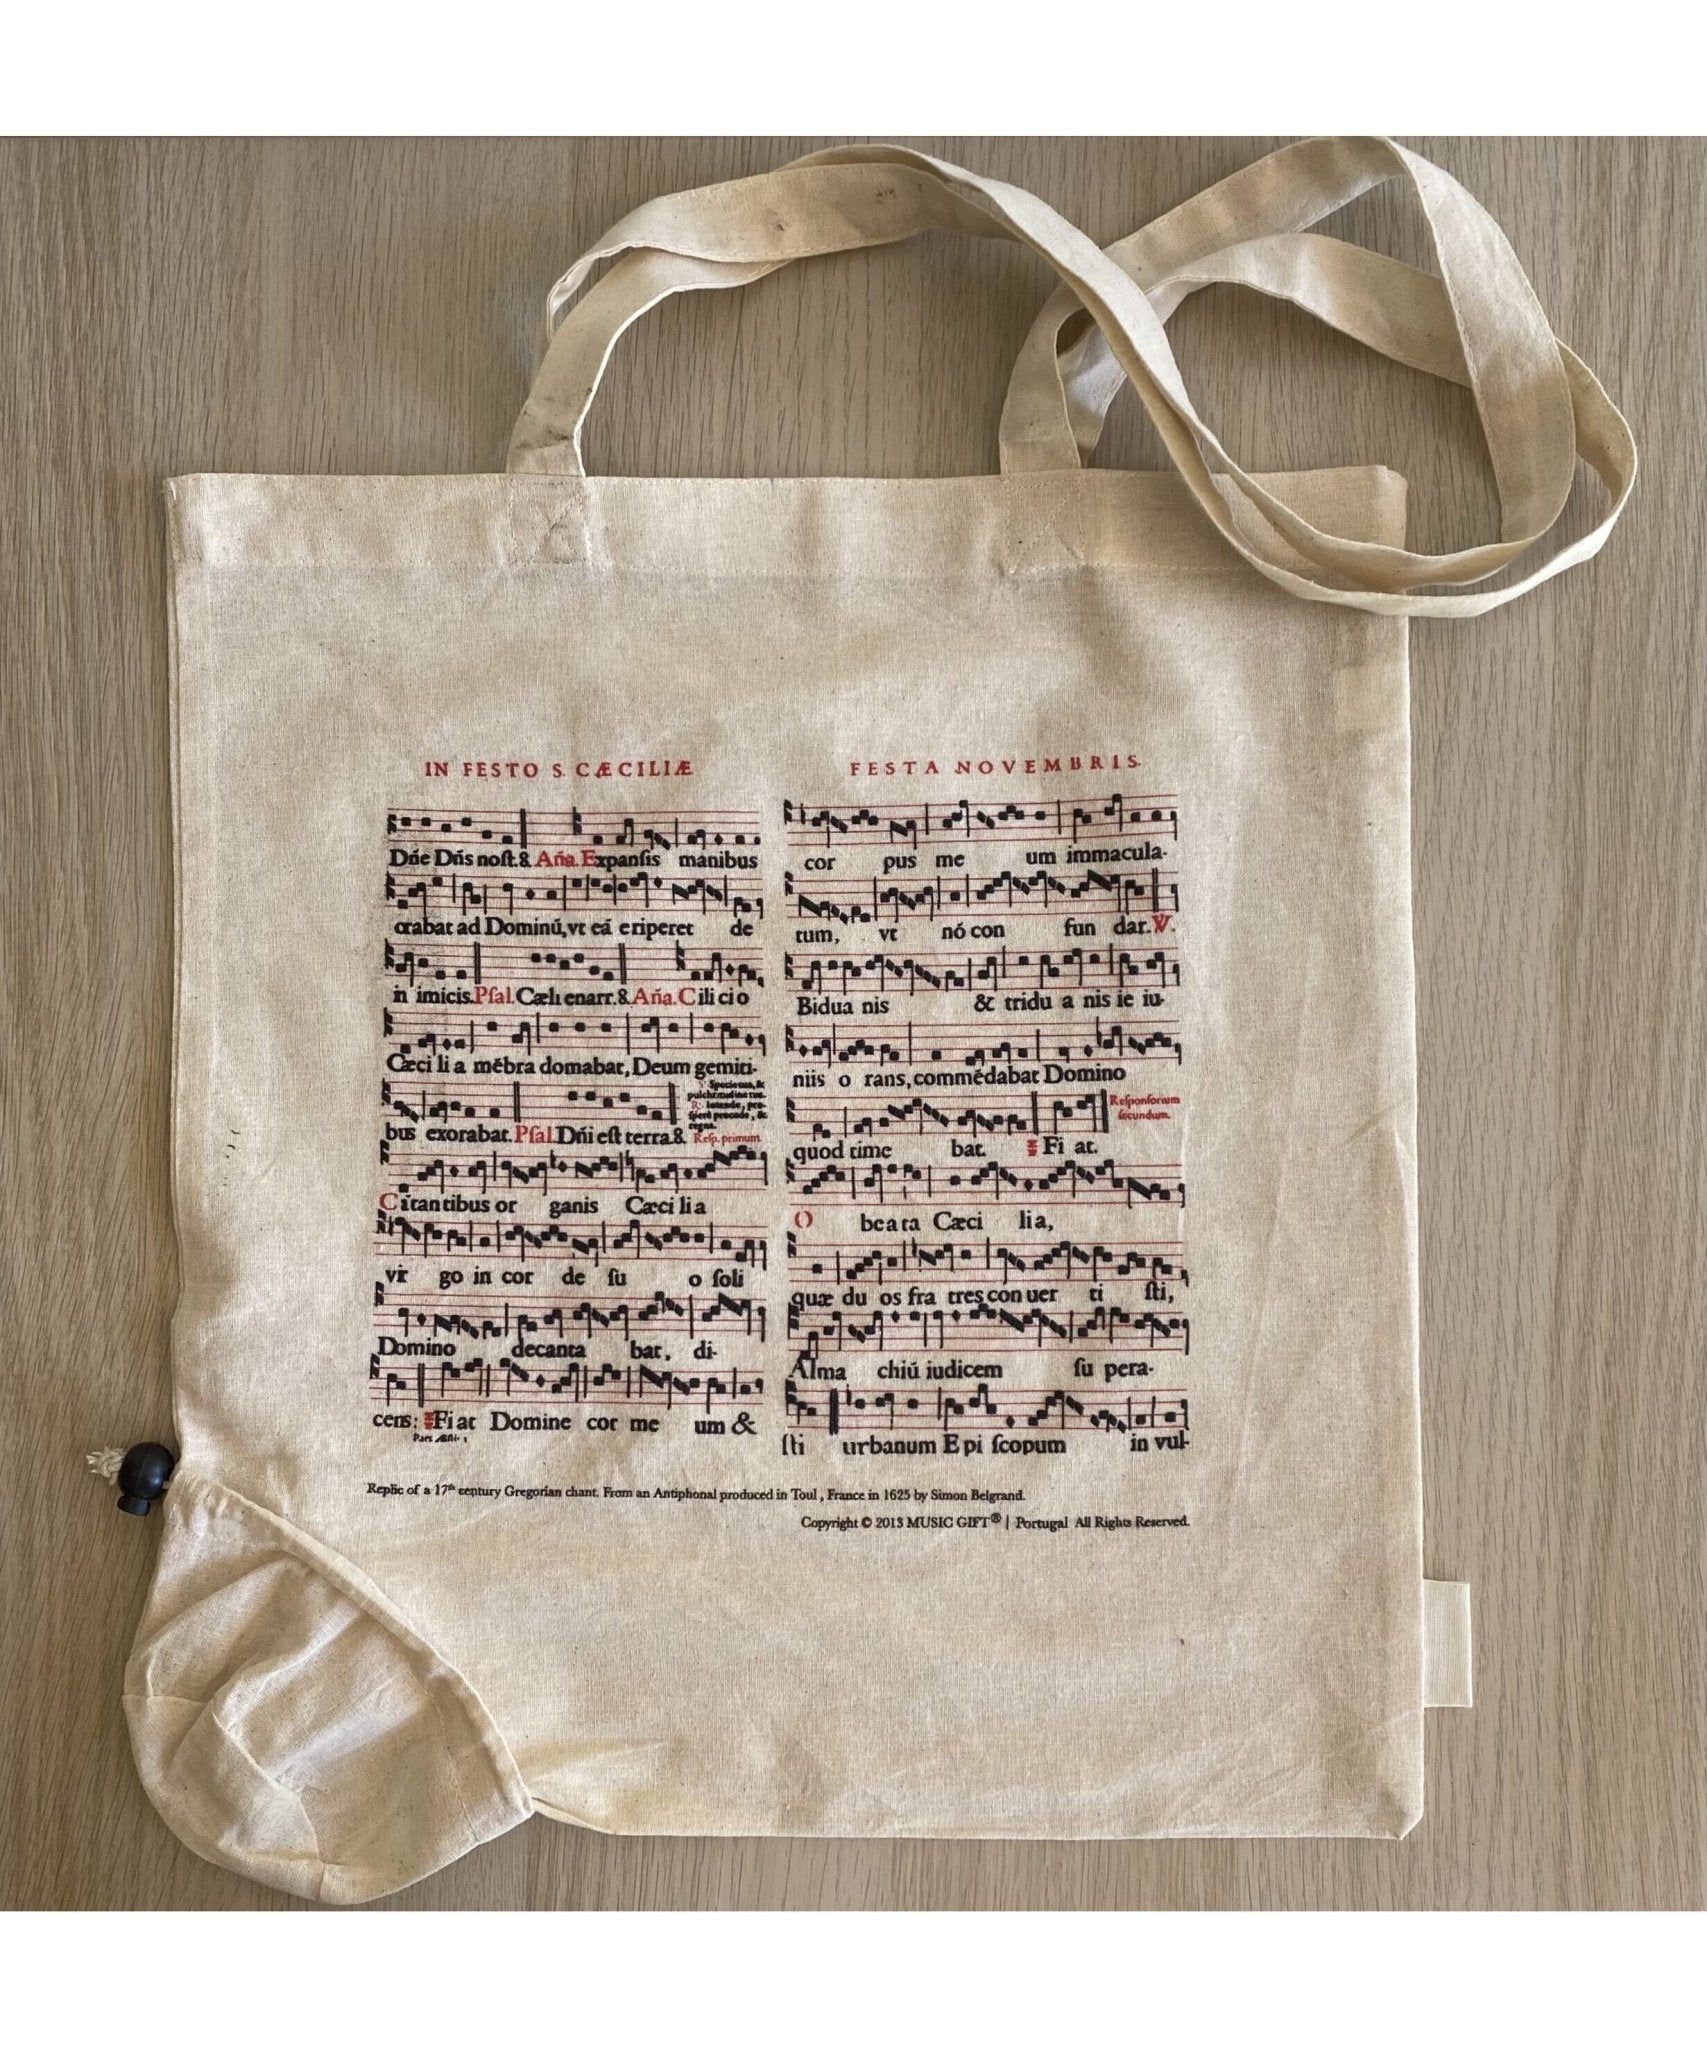 IN FESTO S. CÆCILIÆ
Dñe Dñs noſt.& Aña. Expanſis manibus
orabat ad Dominū,vt eā eriperet de
in imicis.Pſal.Cæli enarr.&Aña.Cili cio
Cæci li a mēbra domabat,Deum gemiti-
Specie tua, &
pulchritudine tua.
℟. Intende, pro-
ſperè procede, &
regna.
bus exorabat.Pſal.Dñi eſt terra.& Reſp. primum
Cātantibus or ganis Cæci li a
vir go in cor de ſu o ſoli
Domino decanta bat, di-
cens: Fi at Domine cor me um &
FESTA NOVEMBRIS.
cor pus me um immacula-
tum, vt nō con fun dar.℣.
Bidua nis & tridu a nis ie iu-
niis o rans,commēdabat Domino
Reſponſorium
ſecundum.
quod time bat. Fi at.
O beata Cæci lia,
quæ du os fra tres con uer ti ſti,
Alma chiū iudicem ſu pera-
ſti urbanum E pi ſcopum in vul-
Replic of a 17th century Gregorian chant. From an Antiphonal produced in Toul , France in 1625 by Simon Belgrand.
Copyright © 2013 MUSIC GIFT® | Portugal All Rights Reserved.